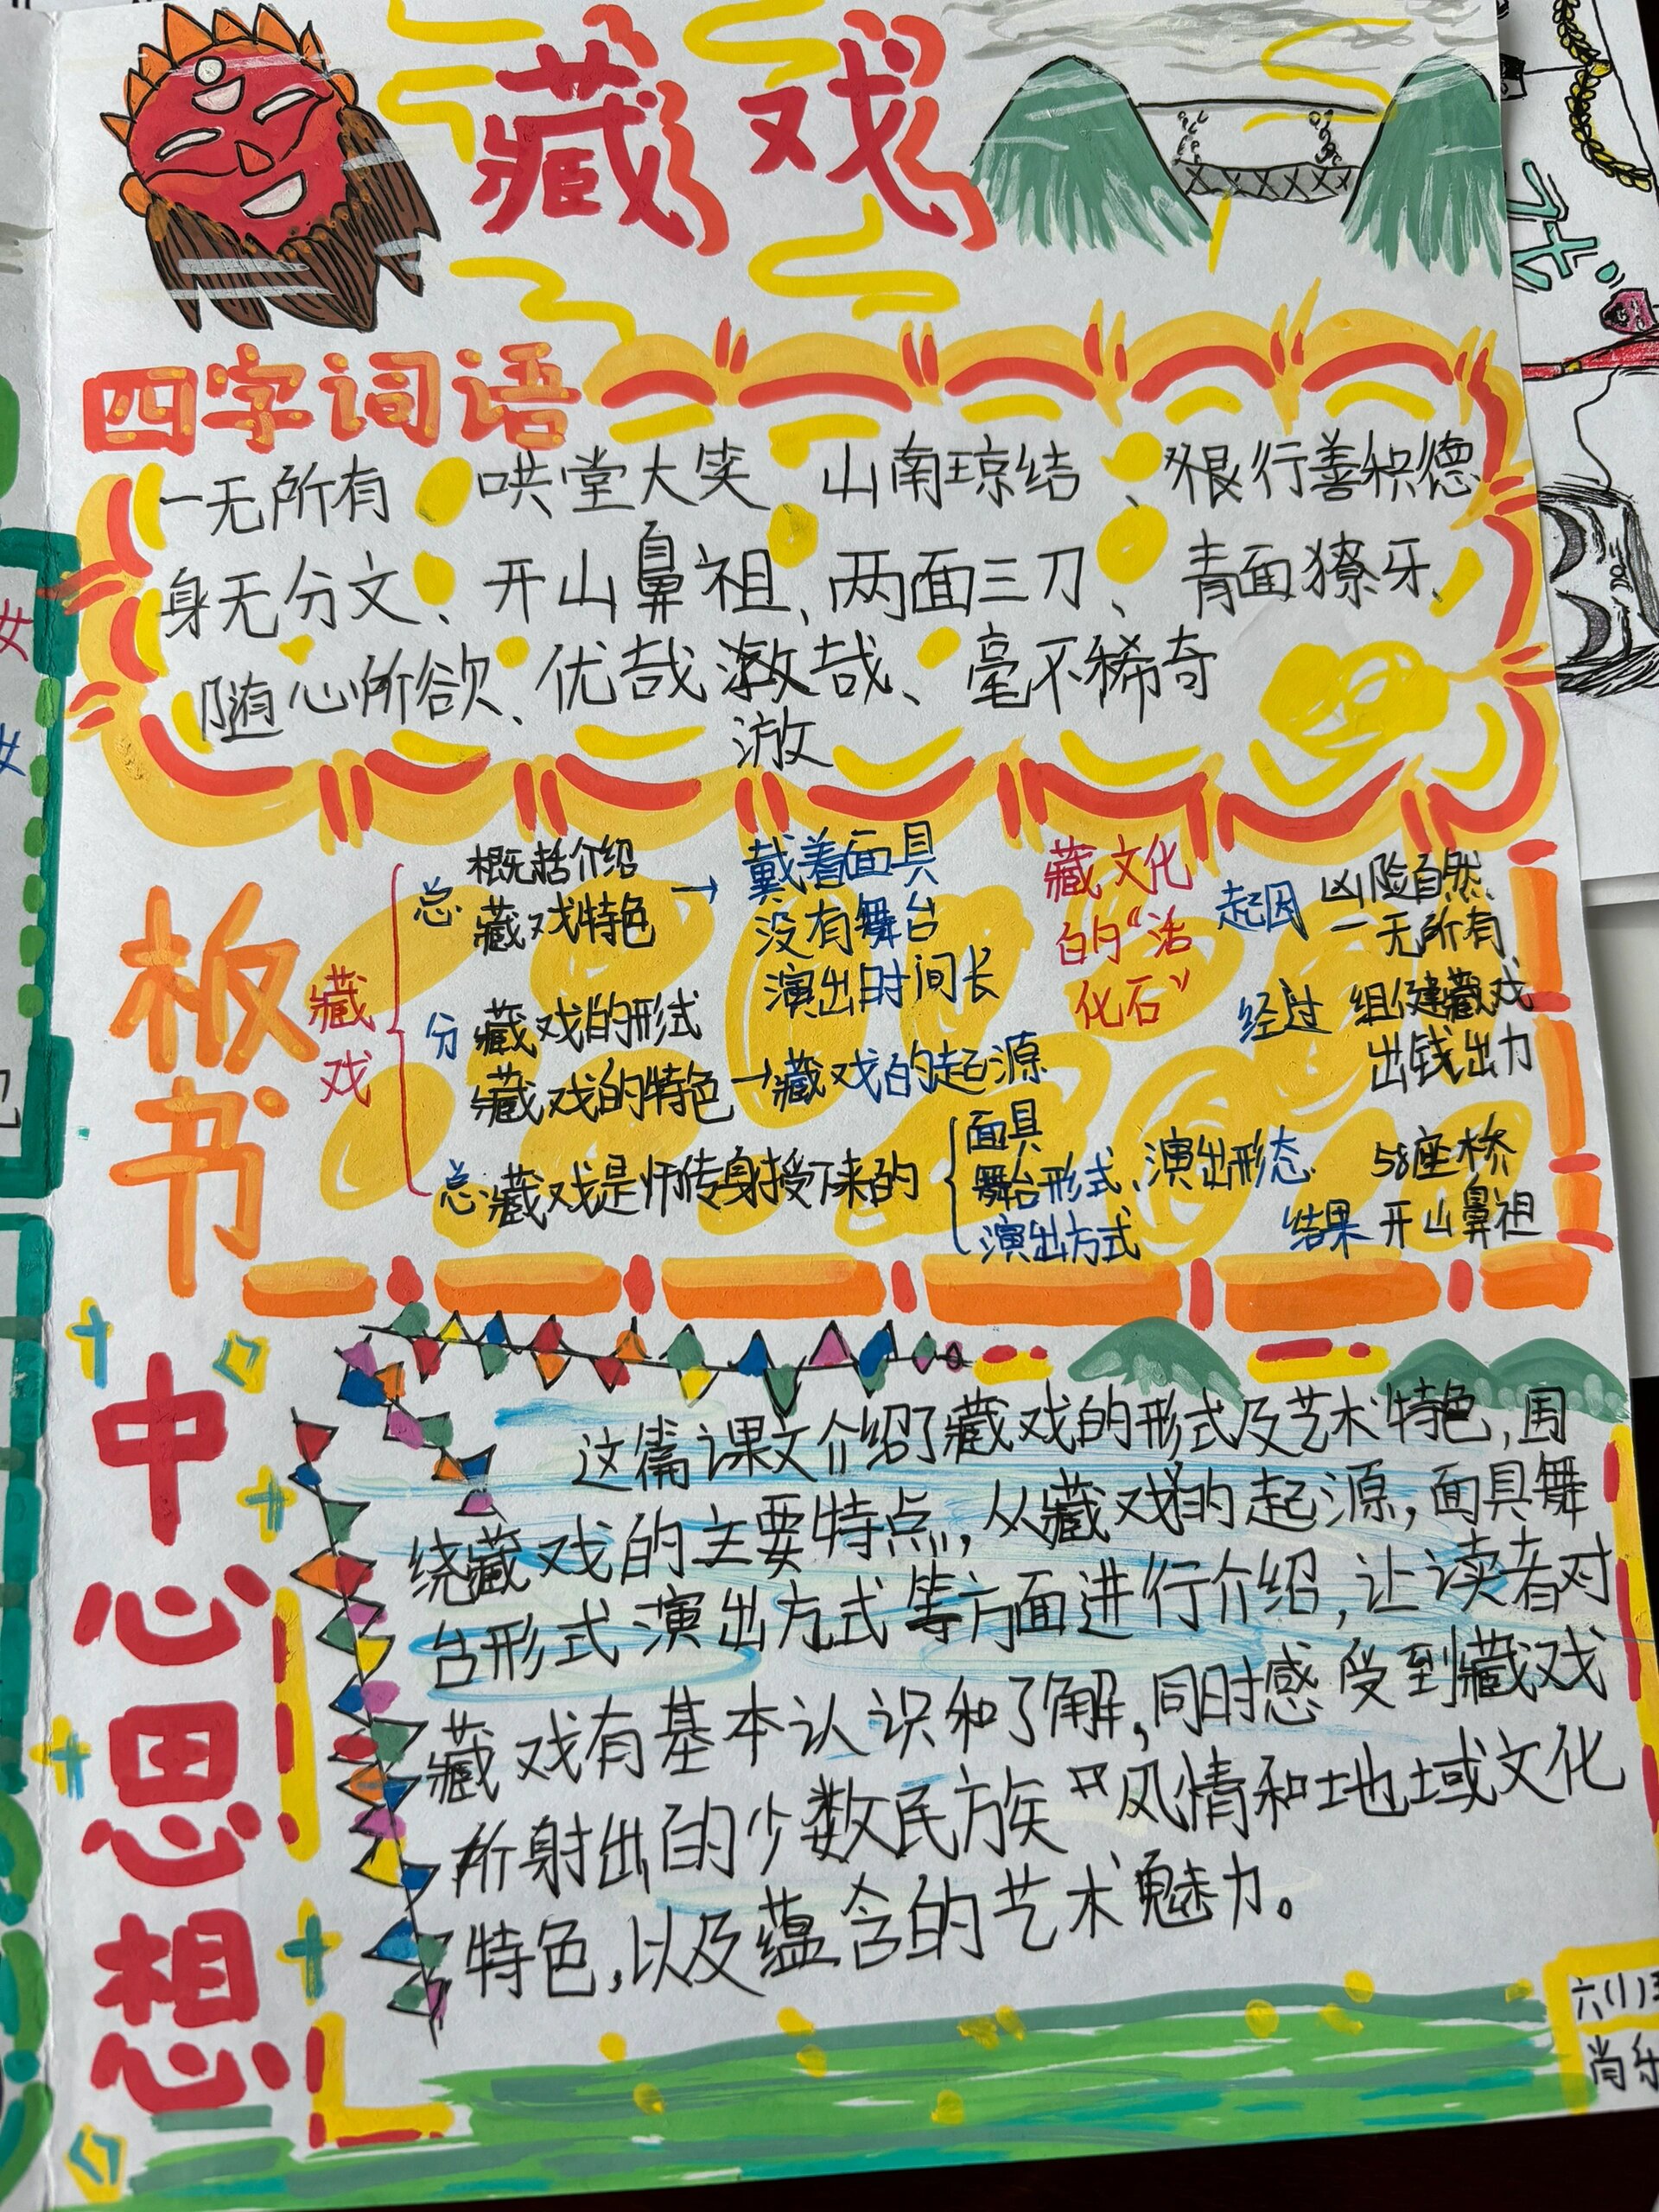 藏戏
四字词语
一无所有 哄堂大笑 山南琼结、行善积德
身无分文、开山鼻祖、两面三刀、青面獠牙、
随心所欲、优哉游哉、毫不稀奇
板书
藏戏
总 概括介绍
藏戏特色 → 戴着面具
没有舞台
演出时间长
分 藏戏的形式
藏戏的特色 → 藏戏的起源
总 藏戏是师传身授下来的
面具
舞台形式、演出形态
演出方式
藏文化
的“活
化石”
起因 凶险自然
一无所有
经过 组建藏戏
出钱出力
58座桥
结果 开山鼻祖
中心思想
这篇课文介绍了藏戏的形式及艺术特色,围
绕藏戏的主要特点,从藏戏的起源,面具舞
台形式演出方式等方面进行介绍,让读者对
藏戏有基本认识和了解,同时感受到藏戏
所射出的少数民族风情和地域文化
特色,以及蕴含的艺术魅力。
六(1)
肖